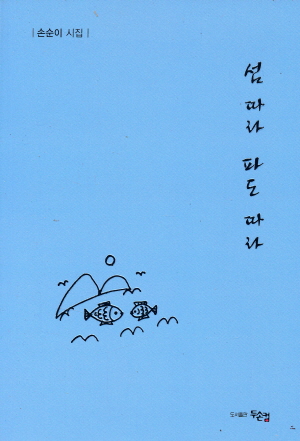 | 손순이 시집 |
섬 따라 파도 따라
도서출판 두손컴